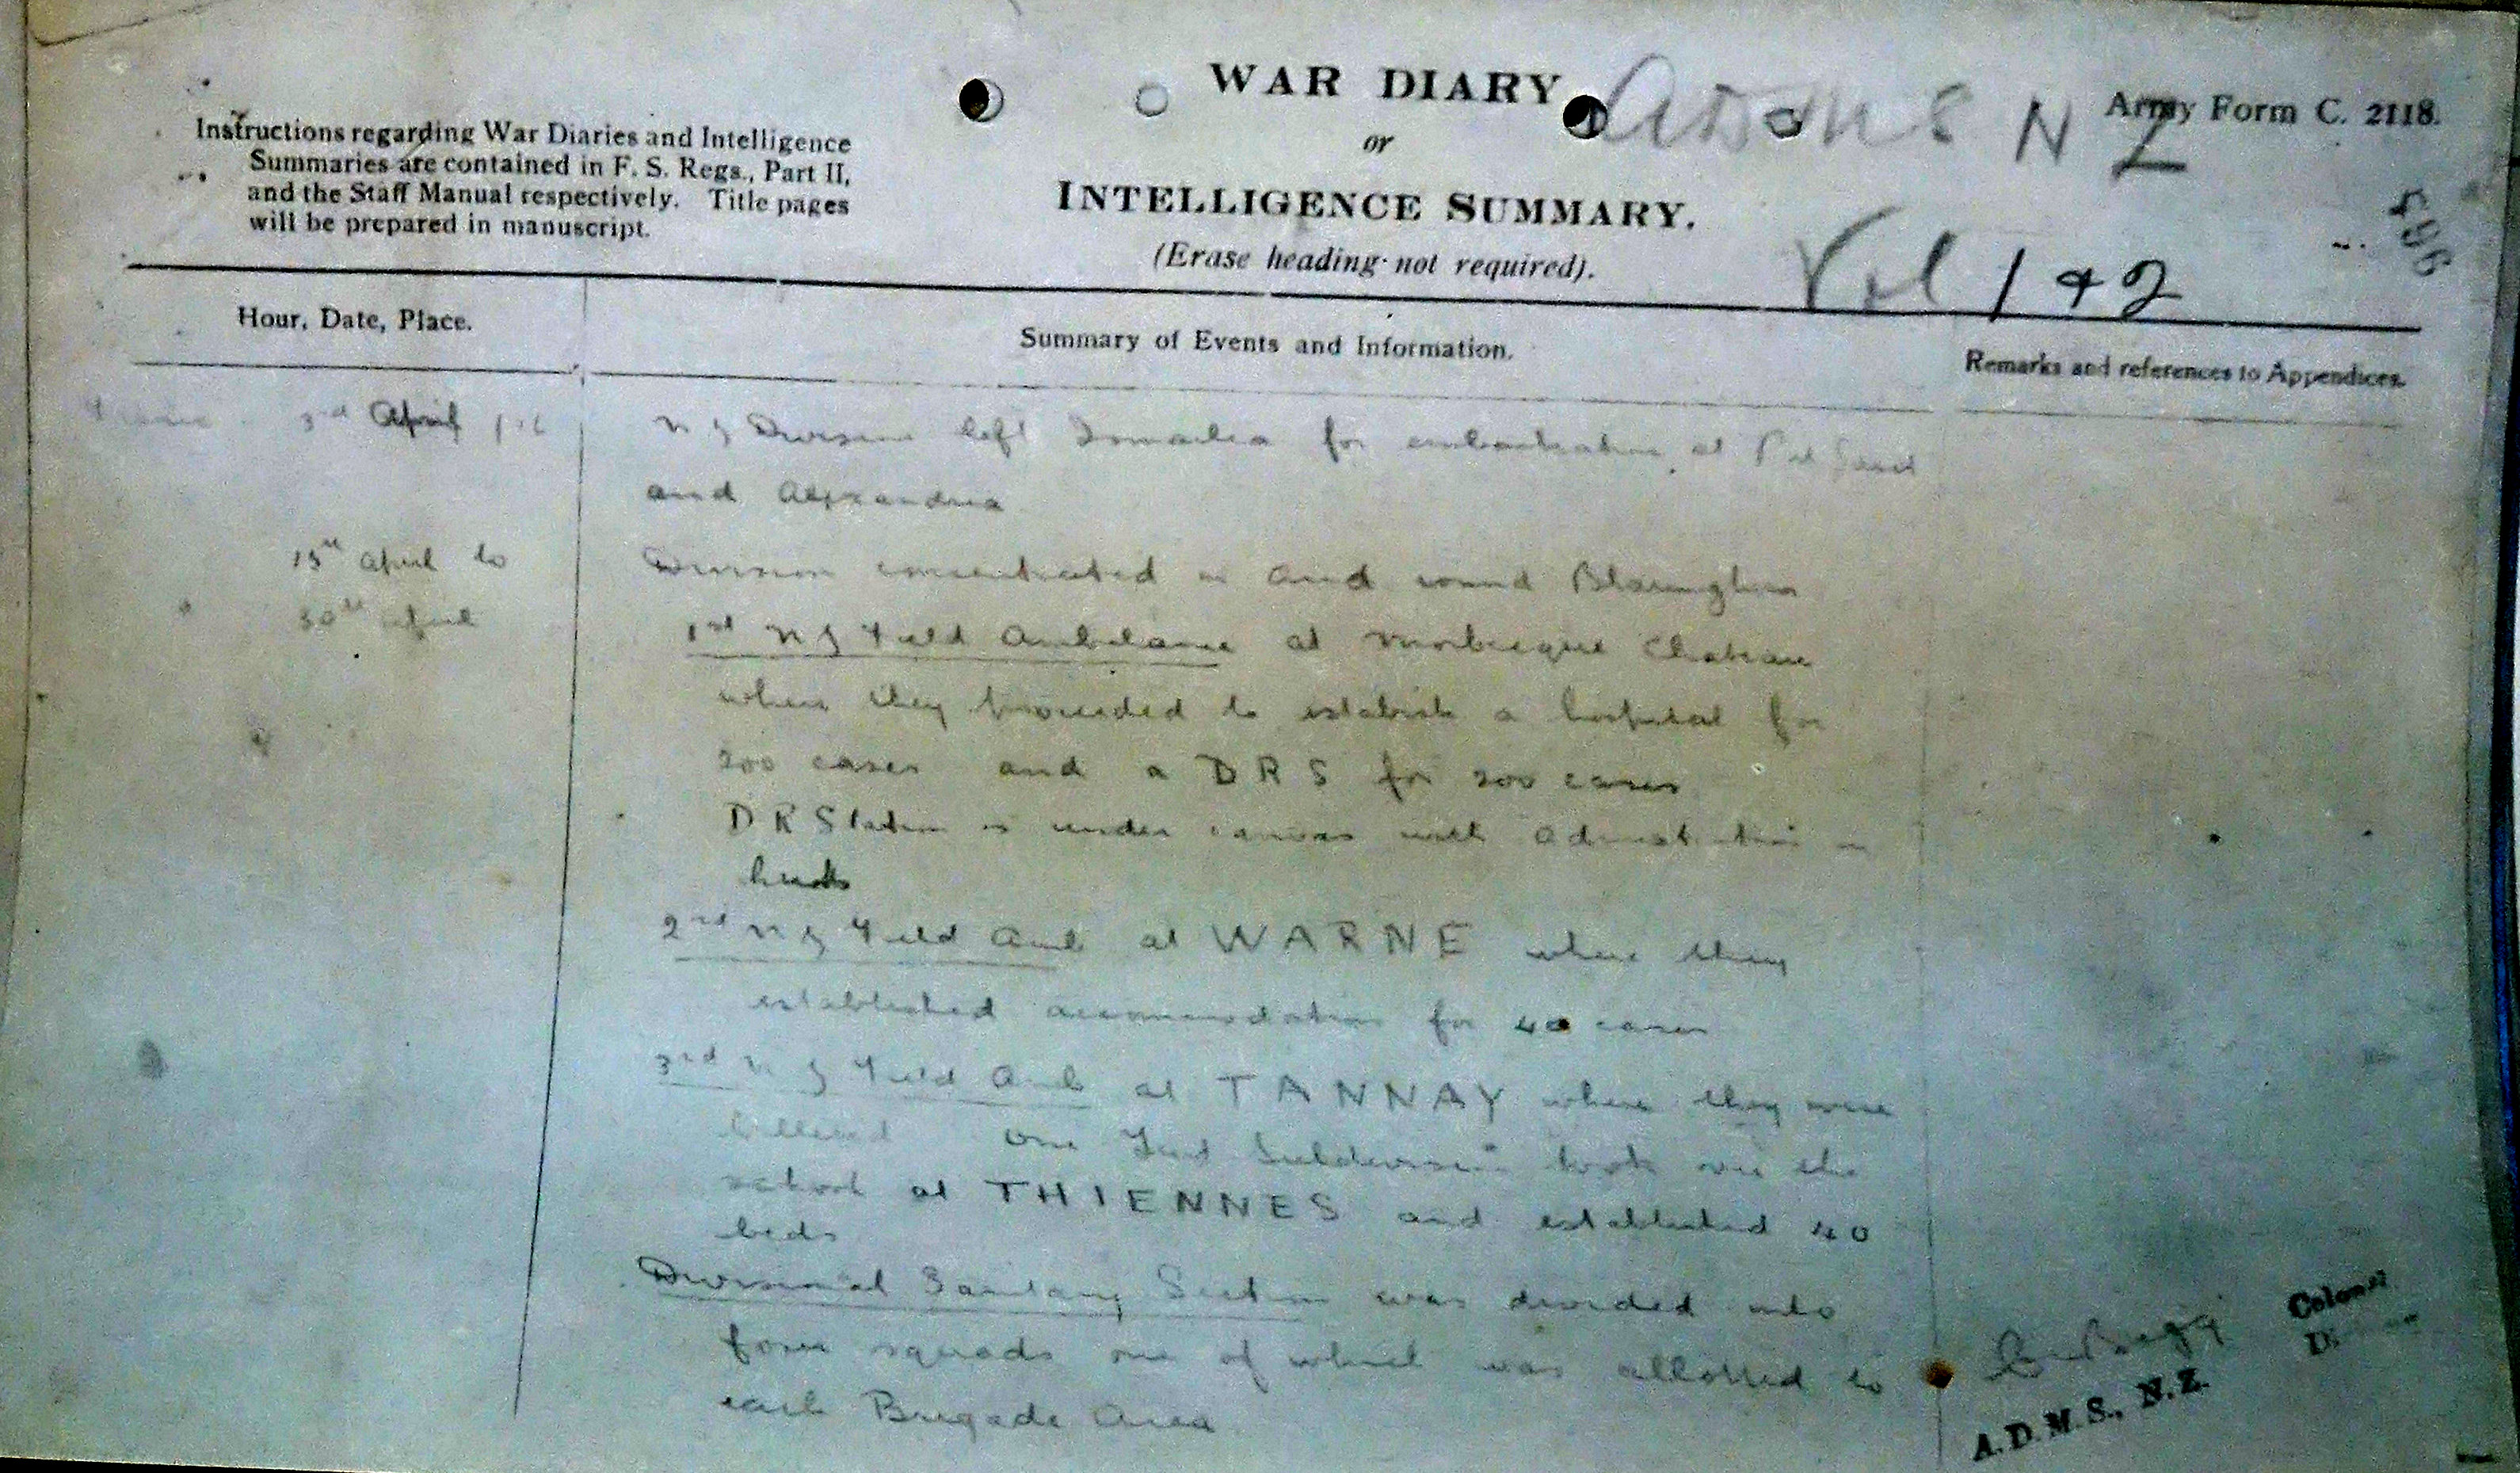 WAR DIARY
or
INTELLIGENCE SUMMARY.
(Erase heading not required).
Instructions regarding War Diaries and Intelligence
Summaries are contained in F. S. Regs., Part II,
and the Staff Manual respectively. Title pages
will be prepared in manuscript.
ADMS NZ
Army Form C. 2118.
Vol 1 & 2
Hour, Date, Place.
Summary of Events and Information.
Remarks and references to Appendices.
3rd April
N Z Division left Ismailia for embarkation at Port Said
and Alexandria
15th April to
30th April
Division concentrated in and round Blaringhem
1st N Z Field Ambulance at Morbecque Chateau
where they proceeded to establish a hospital for
200 cases and a D R S for 200 cases
D R Station is under canvas with Administration in
huts
2nd N Z Field Amb at WARNE where they
established accommodation for 40 cases
3rd N Z Field Amb at TANNAY where they were
billeted One Tent Subdivision took over the
school at THIENNES and established 40
beds
Divisional Sanitary Section was divided into
four squads one of which was allotted to
each Brigade Area
C Begg
Colonel
A.D.M.S., N.Z.